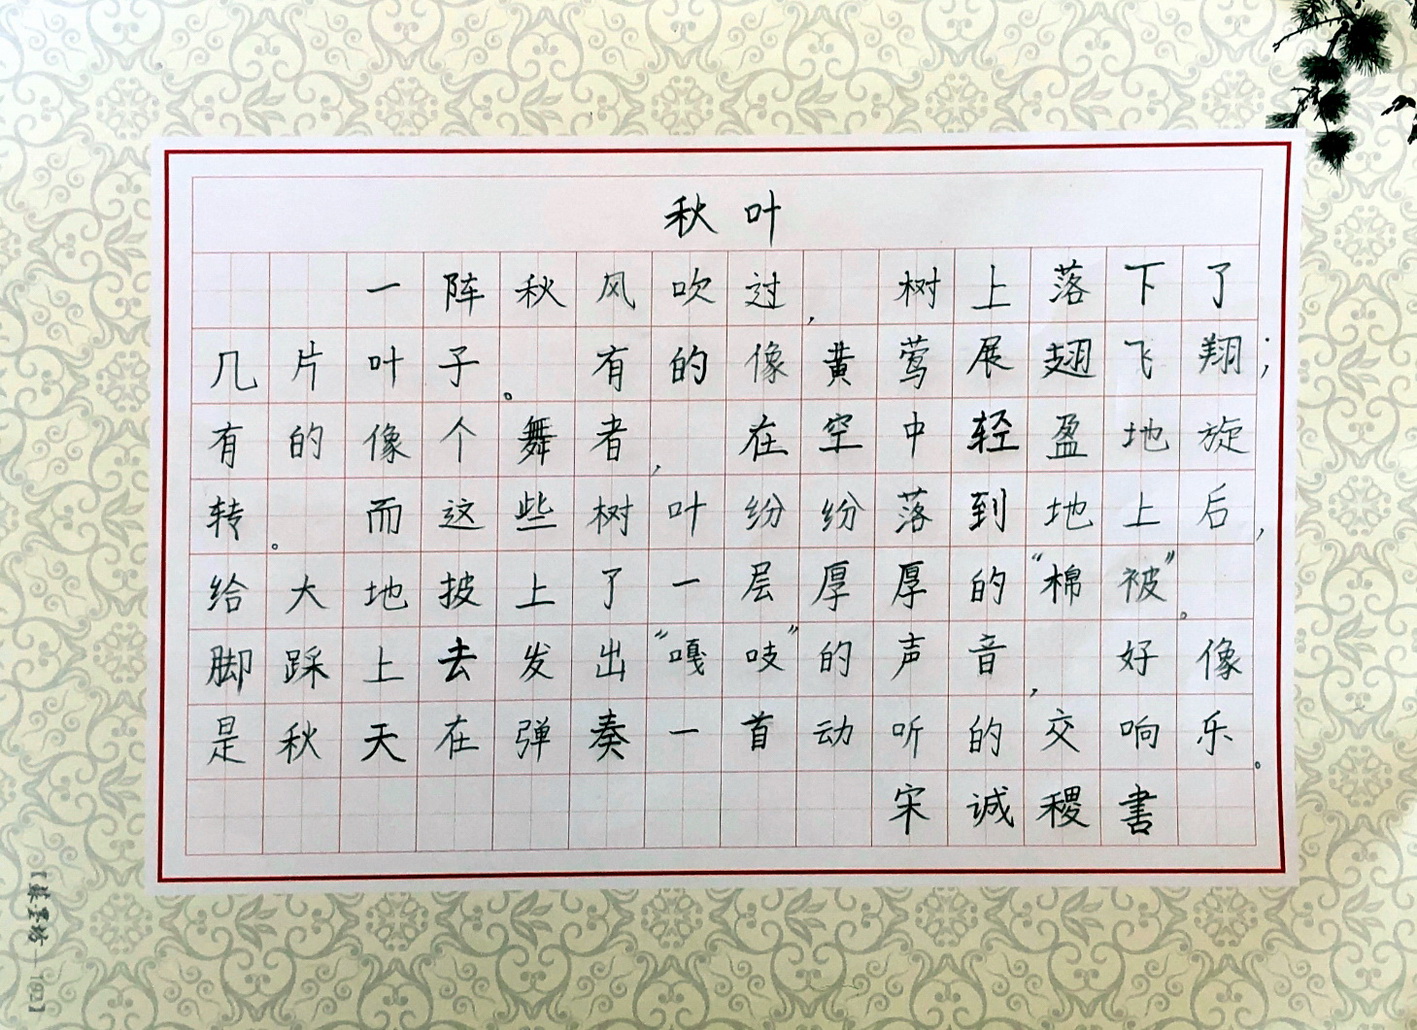 秋叶
一阵秋风吹过，树上落下了
几片叶子。有的像黄莺展翅飞翔；
有的像个舞者，在空中轻盈地旋
转。而这些树叶纷纷落到地上后，
给大地披上了一层厚厚的“棉被”。
脚踩上去发出“嘎吱”的声音，好像
是秋天在弹奏一首动听的交响乐。
宋诚稷书